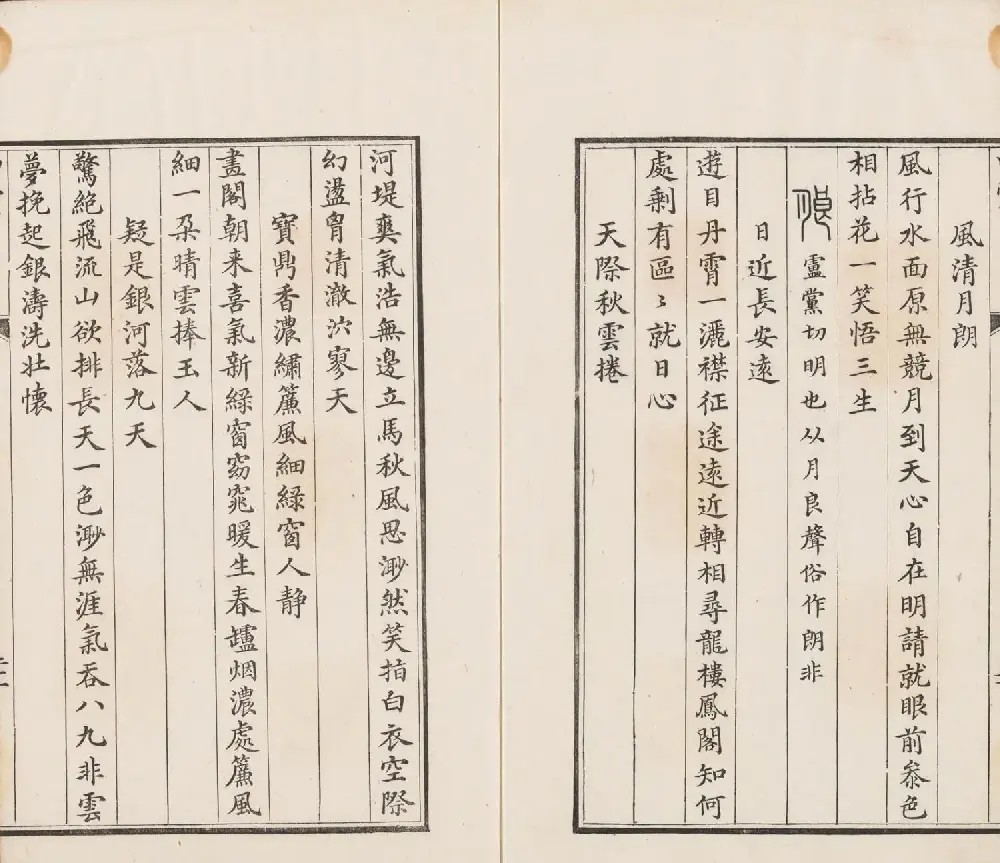 風清月朗
風行水面原無競月到天心自在明請就眼前叅色
相拈花一笑悟三生
盧黨切明也从月良聲俗作朗非
日近長安遠
遊目丹霄一灑襟征途遠近轉相尋龍樓鳳閣知何
處剩有區〻就日心
天際秋雲捲
河堤爽氣浩無邊立馬秋風思渺然笑指白衣空際
幻盪胷清澈泬寥天
寶鼎香濃繡簾風細綠窗人靜
畫閣朝来喜氣新綠窗窈窕暖生春罏烟濃處簾風
細一朶晴雲捧玉人
疑是銀河落九天
驚絶飛流山欲排長天一色渺無涯氣吞八九非雲
夢挽起銀濤洗壯懷